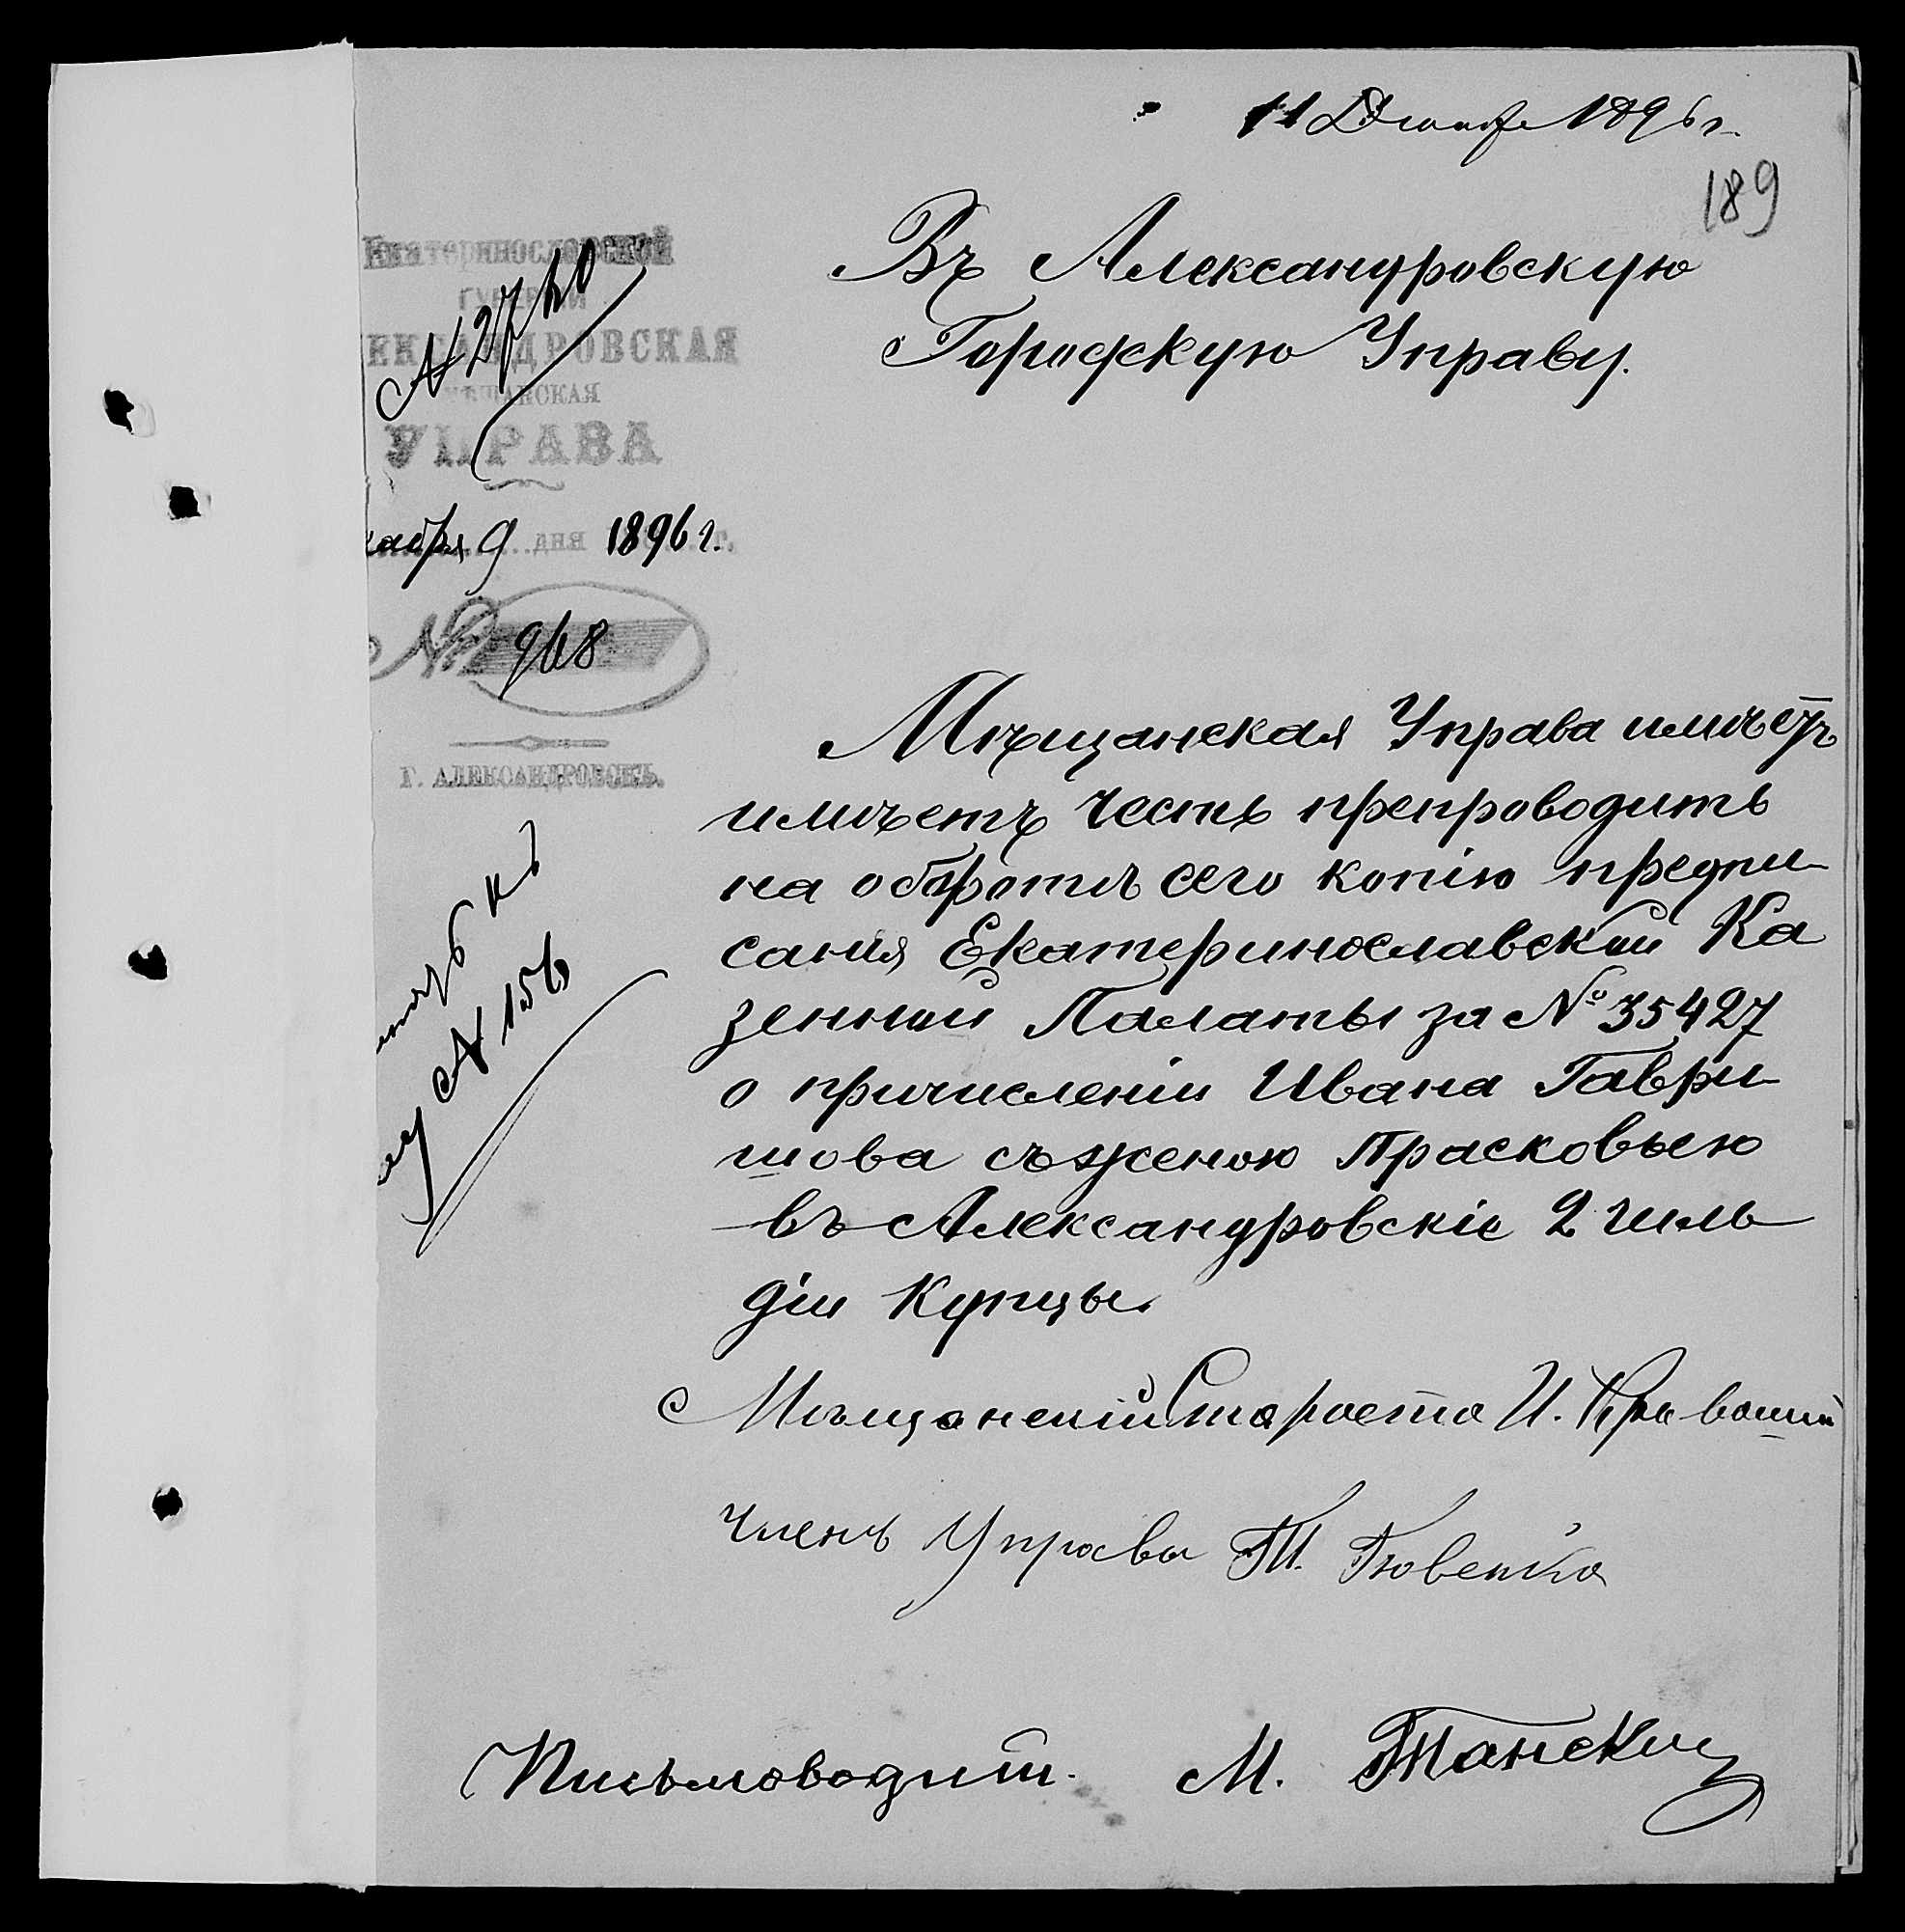 11 Декабр 1896 г.
189
Екатеринославской
ГУБЕРНІИ
ЕКСАНДРОВСКАЯ
МѢЩАНСКАЯ
УПРАВА
кабря 9 дня 1896 г.
№ 968
Г. АЛЕКСАНДРОВСКЪ.
Въ Александровскую
Городскую Управу.
Мѣщанская Управа имѣетъ
имѣетъ честь препроводить
на оборотѣ сего копію предпи-
санія Екатеринославской Ка
зенной Палаты за № 35427
о причисленіи Ивана Гаври-
шова съ женою Прасковьею
въ Александровскіе 2 гиль
діи Купцы.
Мѣщанскій Староста И.
Членъ Управы
Письмоводит. М. Танскій
№ 156